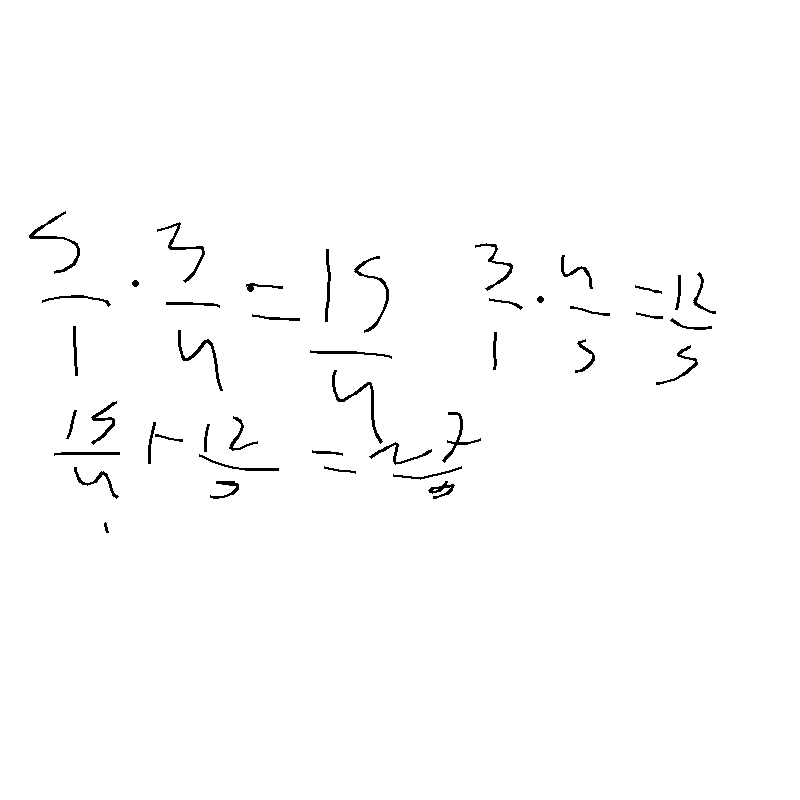 5/1 · 3/4 = 15/4 3/1 · 4/5 = 12/5
15/4 + 12/5 = 27/